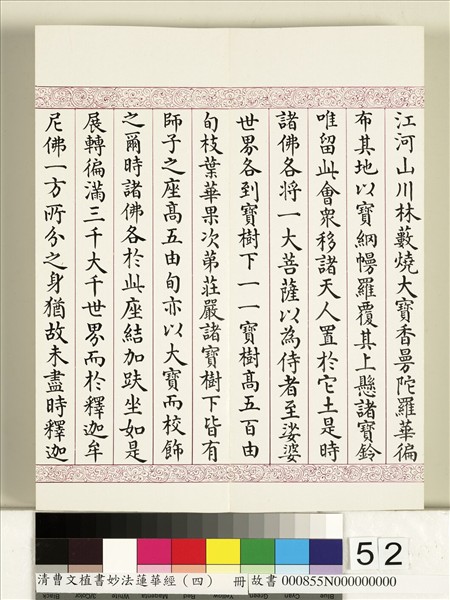 江河山川林藪燒大寶香曼陀羅華徧
布其地以寶網幔羅覆其上懸諸寶鈴
唯留此會眾移諸天人置於它土是時
諸佛各將一大菩薩以為侍者至娑婆
世界各到寶樹下一一寶樹高五百由
旬枝葉華果次弟莊嚴諸寶樹下皆有
師子之座高五由旬亦以大寶而校飾
之爾時諸佛各於此座結加趺坐如是
展轉徧滿三千大千世界而於釋迦牟
尼佛一方所分之身猶故未盡時釋迦
52
清曹文植書妙法蓮華經（四） 冊 故書 000855N000000000